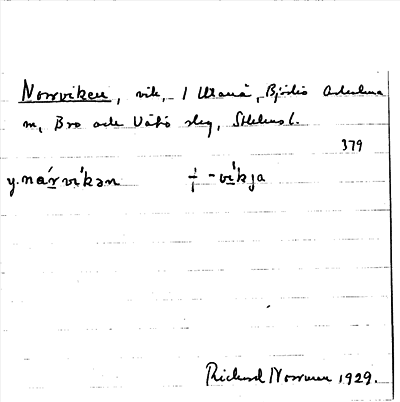 Norrviken, vik, I Utanå, Björkö Arholma
m, Bro och Vätö slg, Sthlms l.
379
y. nárvíkən † -víkja
Rickard Norman 1929.